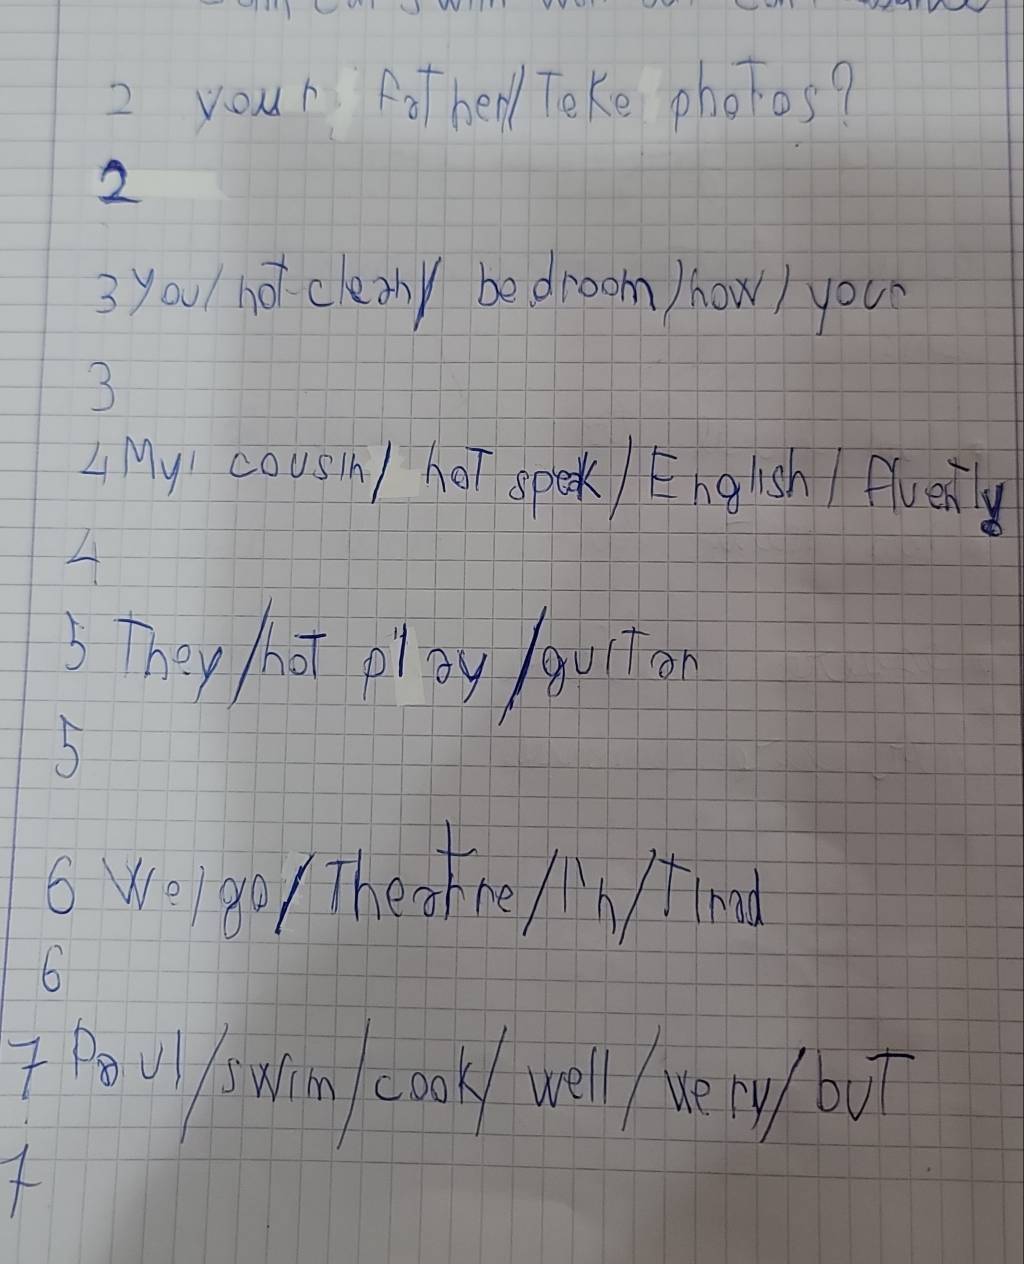 2 your father/Take photos?
2
3 You/not clean/ bedroom/now/your
3
4 My cousin/ not speak/English/fluently
4
5 They/not play/guitar
5
6 We/go/Theatre/in/Tirad
6
7 Paul/swim/cook/well/very/but
7